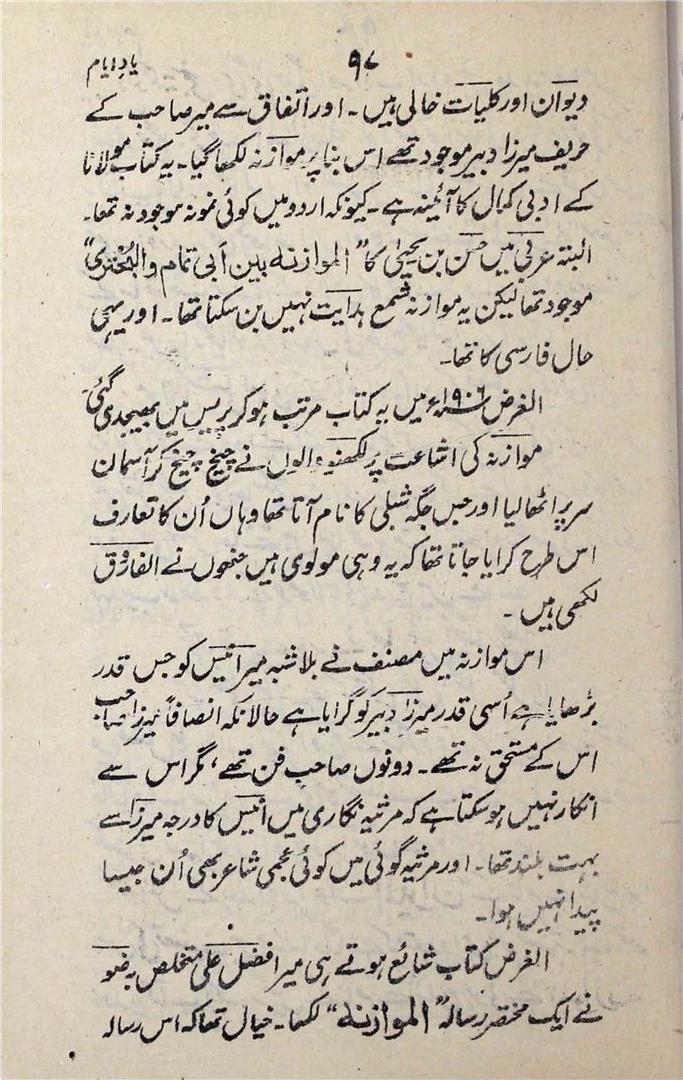 ۹۷ یادِ ایام
دیوان اور کلیات خالی ہیں۔ اور اتفاق سے میر صاحب کے
حریف میرزا دبیر موجود تھے اس بنا پر موازنہ لکھا گیا۔ یہ کتاب مولانا
کے ادبی کمال کا آئینہ ہے۔ کیونکہ اردو میں کوئی نمونہ موجود نہ تھا۔
البتہ عربی میں حسن بن یحییٰ کا "الموازنہ بین أبی تمام والبُحْتری"
موجود تھا لیکن یہ موازنہ شمع ہدایت نہیں بن سکتا تھا۔ اور یہی
حال فارسی کا تھا۔
الغرض ۱۹۰۶ء میں یہ کتاب مرتب ہو کر پریس میں بھیجدی گئی
موازنہ کی اشاعت پر لکھنؤ والوں نے چیخ چیخ کر آسمان
سر پر اٹھا لیا اور جس جگہ شبلی کا نام آتا تھا وہاں اُن کا تعارف
اس طرح کرایا جاتا تھا کہ یہ وہی مولوی ہیں جنھوں نے الفاروق
لکھی ہیں۔
اس موازنہ میں مصنف نے بلا شبہ میر انیس کو جس قدر
بڑھایا ہے اُسی قدر میرزا دبیر کو گرایا ہے حالانکہ انصافاً میرزا صاحب
اس کے مستحق نہ تھے۔ دونوں صاحبِ فن تھے، مگر اس سے
انکار نہیں ہو سکتا ہے کہ مرثیہ نگاری میں انیس کا درجہ میرزا سے
بہت بلند تھا۔ اور مرثیہ گوئی میں کوئی عجمی شاعر بھی اُن جیسا
پیدا نہیں ہوا۔
الغرض کتاب شائع ہوتے ہی میر افضل علی متخلص بہ ضو
نے ایک مختصر رسالہ "الموازنہ" لکھا۔ خیال تھا کہ اس رسالہ